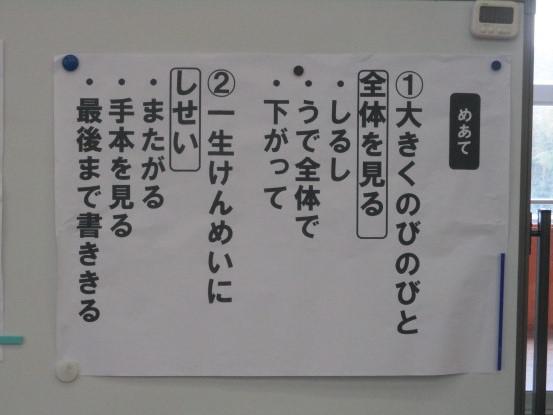 めあて
①大きくのびのびと
全体を見る
・しるし
・うで全体で
・下がって
②一生けんめいに
しせい
・またがる
・手本を見る
・最後まで書ききる